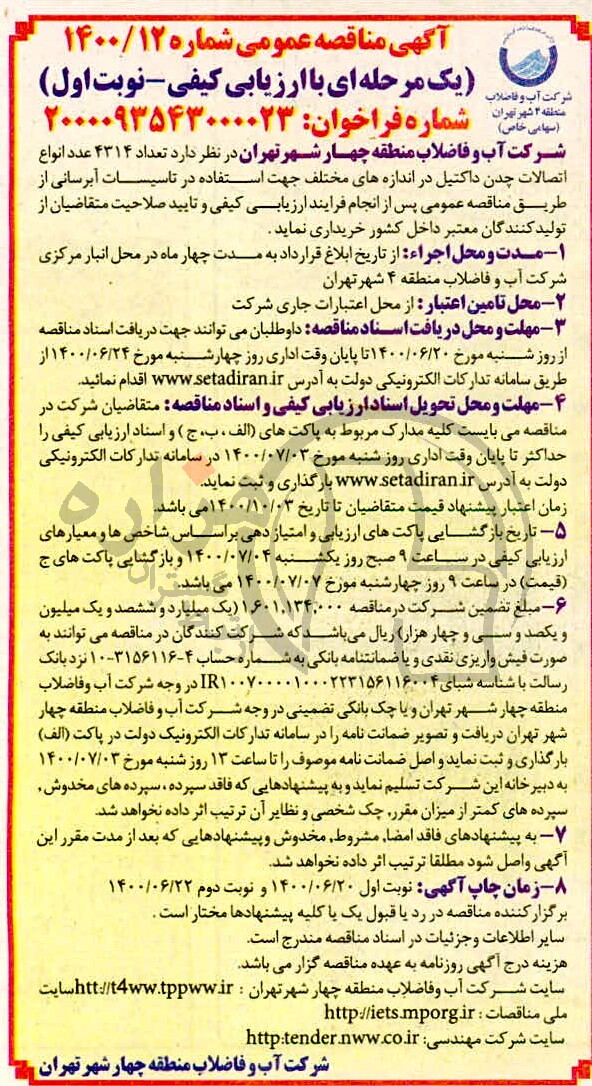 آگهی مناقصه عمومی شماره ۱۴۰۰/۱۲
(یک مرحله ای با ارزیابی کیفی - نوبت اول)
شماره فراخوان: ۲۰۰۰۰۹۳۵۴۳۰۰۰۰۲۳
شرکت آب و فاضلاب
منطقه ۴ شهر تهران
(سهامی خاص)
شرکت آب و فاضلاب منطقه چهار شهر تهران در نظر دارد تعداد ۴۳۱۴ عدد انواع
اتصالات چدن داکتیل در اندازه های مختلف جهت استفاده در تاسیسات آبرسانی از
طریق مناقصه عمومی پس از انجام فرایند ارزیابی کیفی و تایید صلاحیت متقاضیان از
تولیدکنندگان معتبر داخل کشور خریداری نماید .
۱- مدت و محل اجراء: از تاریخ ابلاغ قرارداد به مدت چهار ماه در محل انبار مرکزی
شرکت آب و فاضلاب منطقه ۴ شهر تهران
۲- محل تامین اعتبار: از محل اعتبارات جاری شرکت
۳- مهلت و محل دریافت اسناد مناقصه: داوطلبان می توانند جهت دریافت اسناد مناقصه
از روز شنبه مورخ ۱۴۰۰/۰۶/۲۰ تا پایان وقت اداری روز چهارشنبه مورخ ۱۴۰۰/۰۶/۲۴ از
طریق سامانه تدارکات الکترونیکی دولت به آدرس www.setadiran.ir اقدام نمائید.
۴- مهلت و محل تحویل اسناد ارزیابی کیفی و اسناد مناقصه: متقاضیان شرکت در
مناقصه می بایست کلیه مدارک مربوط به پاکت های (الف ، ب، ج ) و اسناد ارزیابی کیفی را
حداکثر تا پایان وقت اداری روز شنبه مورخ ۱۴۰۰/۰۷/۰۳ در سامانه تدارکات الکترونیکی
دولت به آدرس www.setadiran.ir بارگذاری و ثبت نماید.
زمان اعتبار پیشنهاد قیمت متقاضیان تا تاریخ ۱۴۰۰/۱۰/۰۳ می باشد.
۵- تاریخ بازگشایی پاکت های ارزیابی و امتیاز دهی براساس شاخص ها و معیارهای
ارزیابی کیفی در ساعت ۹ صبح روز یکشنبه ۱۴۰۰/۰۷/۰۴ و بازگشایی پاکت های ج
(قیمت) در ساعت ۹ روز چهارشنبه مورخ ۱۴۰۰/۰۷/۰۷ می باشد.
۶- مبلغ تضمین شرکت در مناقصه ۱,۶۰۱,۱۳۴,۰۰۰ (یک میلیارد و ششصد و یک میلیون
و یکصد و سی و چهار هزار) ریال می باشد که شرکت کنندگان در مناقصه می توانند به
صورت فیش واریزی نقدی و یا ضمانتنامه بانکی به شماره حساب ۴-۳۱۵۶۱۱۶-۱۰ نزد بانک
رسالت با شناسه شبای IR۱۰۰۷۰۰۰۰۱۰۰۰۲۲۳۱۵۶۱۱۶۰۰۴ در وجه شرکت آب وفاضلاب
منطقه چهار شهر تهران و یا چک بانکی تضمینی در وجه شرکت آب و فاضلاب منطقه چهار
شهر تهران دریافت و تصویر ضمانت نامه را در سامانه تدارکات الکترونیک دولت در پاکت (الف)
بارگذاری و ثبت نماید و اصل ضمانت نامه موصوف را تا ساعت ۱۳ روز شنبه مورخ ۱۴۰۰/۰۷/۰۳
به دبیرخانه این شرکت تسلیم نماید و به پیشنهادهایی که فاقد سپرده ، سپرده های مخدوش ,
سپرده های کمتر از میزان مقرر, چک شخصی و نظایر آن ترتیب اثر داده نخواهد شد.
۷- به پیشنهادهای فاقد امضا, مشروط, مخدوش وپیشنهادهایی که بعد از مدت مقرر این
آگهی واصل شود مطلقا ترتیب اثر داده نخواهد شد.
۸- زمان چاپ آگهی: نوبت اول ۱۴۰۰/۰۶/۲۰ و نوبت دوم ۱۴۰۰/۰۶/۲۲
برگزار کننده مناقصه در رد یا قبول یک یا کلیه پیشنهادها مختار است .
سایر اطلاعات وجزئیات در اسناد مناقصه مندرج است.
هزینه درج آگهی روزنامه به عهده مناقصه گزار می باشد.
سایت شرکت آب وفاضلاب منطقه چهار شهر تهران : htt://t4ww.tppww.ir سایت
ملی مناقصات : http://iets.mporg.ir
سایت شرکت مهندسی: http:tender.nww.co.ir
شرکت آب و فاضلاب منطقه چهار شهر تهران
هزاره